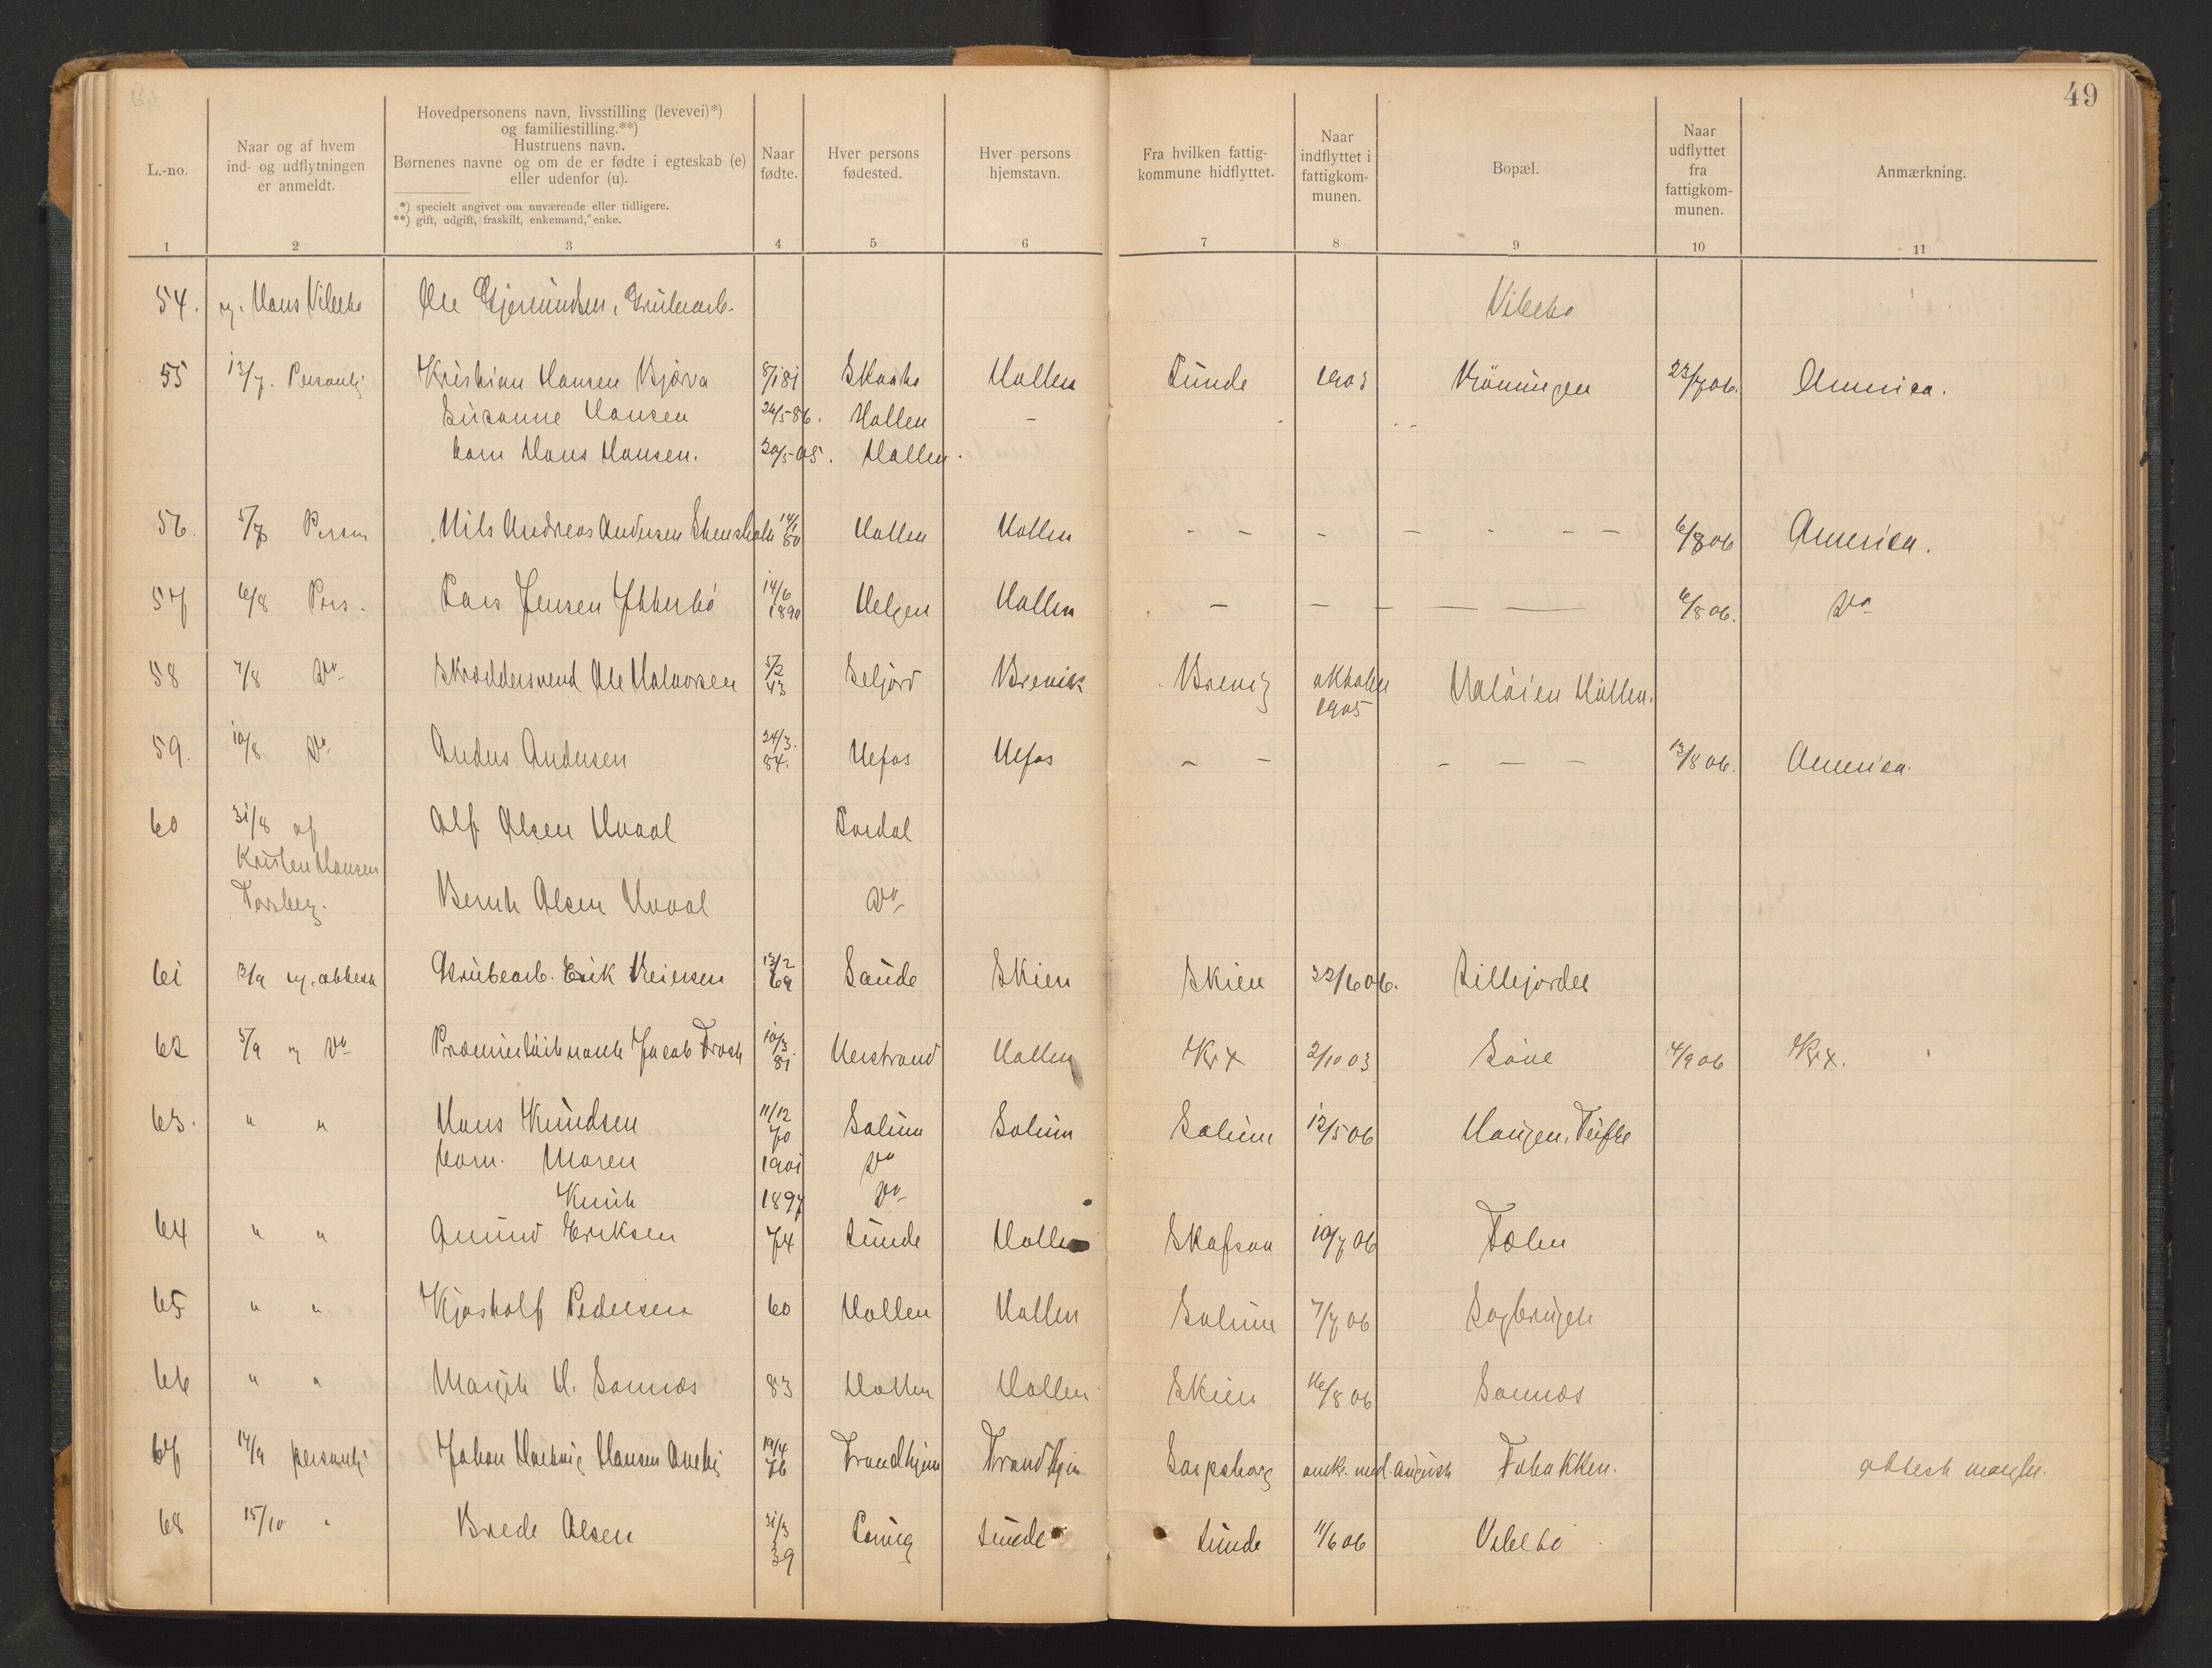 49
L.-no.
Naar og af hvem
ind- og udflytningen
er anmeldt.
Hovedpersonens navn, livsstilling (levevei)*)
og familiestilling.**)
Hustruens navn.
Børnenes navne og om de er fødte i egteskab (e)
eller udenfor (u).
*) specielt angivet om nuværende eller tidligere.
**) gift, udgift, fraskilt, enkemand, enke.
Naar
fødte.
Hver persons
fødested.
Hver persons
hjemstavn.
Fra hvilken fattig-
kommune hidflyttet.
Naar
indflyttet i
fattigkom-
munen.
Bopæl.
Naar
udflyttet
fra
fattigkom-
munen.
Anmærkning.
1 2 3 4 5 6 7 8 9 10 11
54. Hans Vibeto Ole Gjermundsen, Grubearb. Vibeto
55 13/7. Personlig Kristian Hansen Bjørva 8/1 81 Skaato Hollen Lunde 1903 Kröningen 23/7 06. America.
Susanne Hansen 26/5 86. Hollen -
barn Hans Hansen. 20/5-05. Hollen.
56. 5/7 Person Nils Andreas Andersen Stensholt 14/1 80 Hollen Hollen - - - - - - - 6/8 06 America.
57 6/8 Pers. Lars Jensen Ytterbö 14/6 1890 Helgen Hollen - - - - - 6/8 06. Do
58 7/8 Do Skræddersvend Ole Halvorsen 5/2 43 Seljord Brevik Brevig oktober 1905 Haløien Hollen.
59. 10/8 Do Anders Andersen 24/3. 84. Ulefos Ulefos - - - - - 13/8 06. America.
60 31/8 af Alf Olsen Hvaal Lardal
Kristen Hansen
Torsberg. Bernt Olsen Hvaal Do
61 3/9 attest Grubearb. Erik Reiersen 13/2 69 Saude Skien Skien 22/6 06. Lillejordet
62 5/9 Do Jacob Trosk 10/3. 81 Hollen Kr.x 2/10 03 Söve 14/9 06 Kr.x.
63. " " Hans Knudsen 11/12 70 Solum Solum Solum 12/5 06 Haugen, Tufte
barn. Maren 1901 Do
Knut 1897 Do
64 " " Amund Eriksen 74 Lunde Hollen Skafsaa 10/7 06 Tolen
65 " " Kjøstolf Pedersen 60 Hollen Hollen Solum 7/7 06 Sagbrugek
66 " " Margit H. Somnæs 83 Hollen Hollen Skien 16/8 06 Somnæs
67 14/9 personlig Johan Hansen 19/4 76 Trondhjem Trondhjem Sarpsborg omkr. med. august Tobakken. attest mangler.
68 15/10 " Brede Olsen 31/3 39 Lunde Lunde 11/6 06 Vibeto